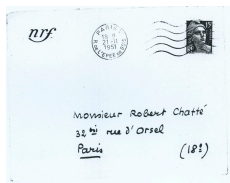 nrf
PARIS
21-11
1951
Monsieur Robert Chatté
32bis rue d'Orsel
Paris (18e)